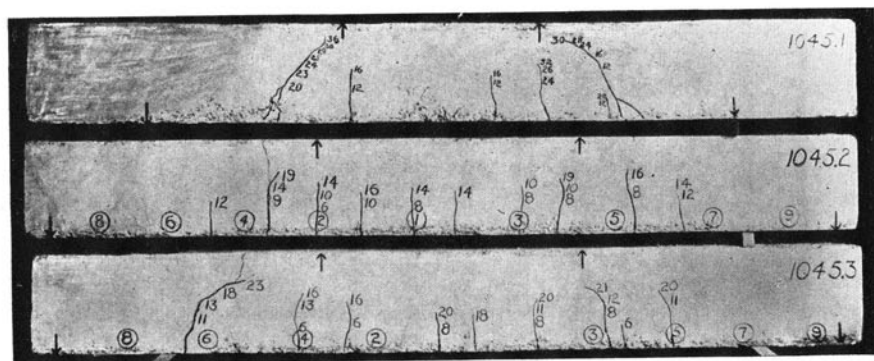 1045.1
36
24
23
20
16
12
16
12
32
26
24
30
12
1045.2
19
14
9
12
14
10
6
16
10
14
8
14
10
8
19
10
8
16
8
14
12
8 6 4 2 1 3 5 7 9
1045.3
23
18
13
11
16
13
6
16
6
20
8
18
20
11
8
21
12
8
6
20
11
8 6 4 2 3 5 7 9